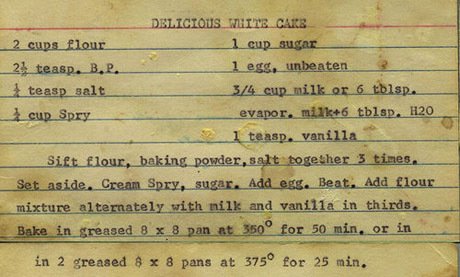 DELICIOUS WHITE CAKE
2 cups flour 1 cup sugar
2½ teasp. B.P. 1 egg, unbeaten
½ teasp salt 3/4 cup milk or 6 tblsp.
½ cup Spry evapor. milk+6 tblsp. H2O
1 teasp. vanilla
Sift flour, baking powder,salt together 3 times.
Set aside. Cream Spry, sugar. Add egg. Beat. Add flour
mixture alternately with milk and vanilla in thirds.
Bake in greased 8 x 8 pan at 350° for 50 min. or in
in 2 greased 8 x 8 pans at 375° for 25 min.